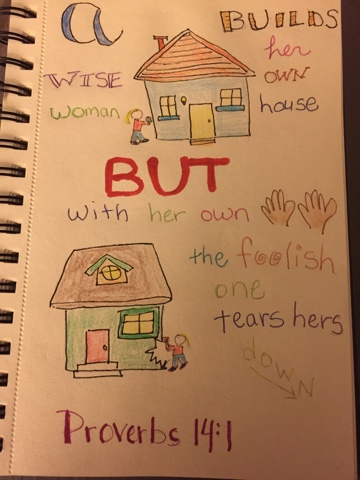 a
WISE
woman
BUILDS
her
OWN
house
BUT
with her own
the foolish
one
tears hers
down
Proverbs 14:1